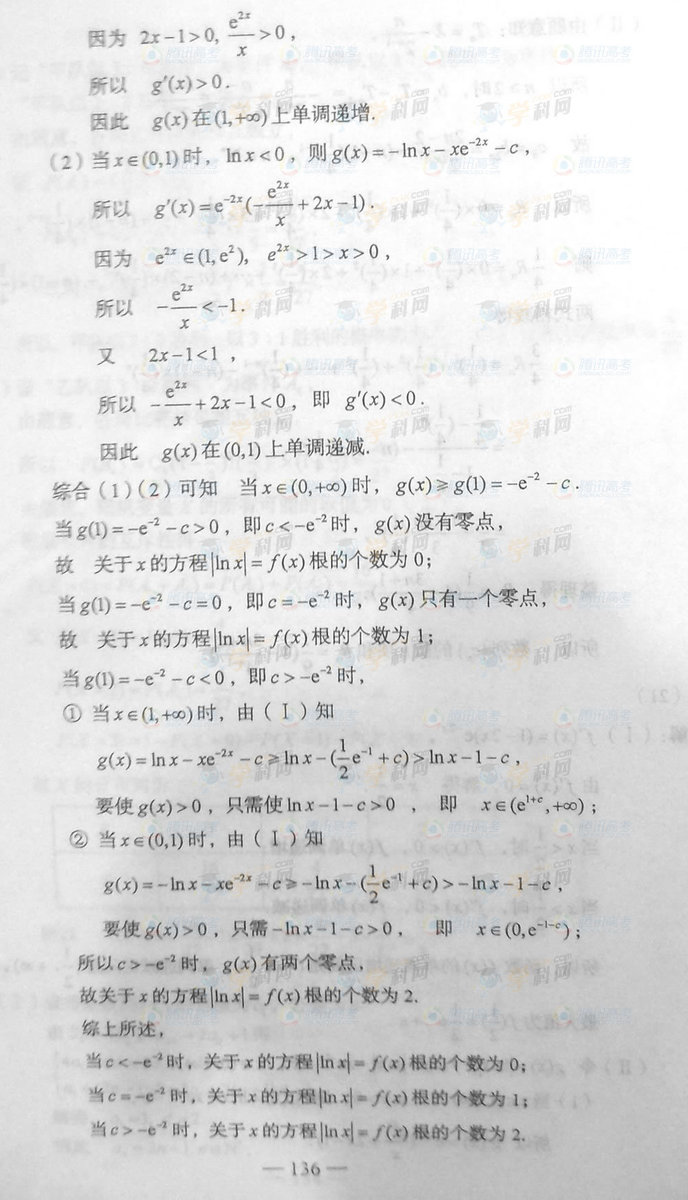 因为 2x-1>0, e^{2x}/x>0，
所以 g′(x)>0.
因此 g(x)在(1,+∞)上单调递增.
(2)当x∈(0,1)时，lnx<0，则g(x)=-lnx-xe^{-2x}-c，
所以 g′(x)=e^{-2x}(-e^{2x}/x+2x-1).
因为 e^{2x}∈(1,e^2), e^{2x}>1>x>0，
所以 -e^{2x}/x<-1.
又 2x-1<1，
所以 -e^{2x}/x+2x-1<0，即 g′(x)<0.
因此 g(x)在(0,1)上单调递减.
综合(1)(2)可知 当x∈(0,+∞)时，g(x)≥g(1)=-e^{-2}-c.
当g(1)=-e^{-2}-c>0，即c<-e^{-2}时，g(x)没有零点，
故 关于x的方程|lnx|=f(x)根的个数为0；
当g(1)=-e^{-2}-c=0，即c=-e^{-2}时，g(x)只有一个零点，
故 关于x的方程|lnx|=f(x)根的个数为1；
当g(1)=-e^{-2}-c<0，即c>-e^{-2}时，
① 当x∈(1,+∞)时，由(Ⅰ)知
g(x)=lnx-xe^{-2x}-c≥lnx-(1/2 e^{-1}+c)>lnx-1-c，
要使g(x)>0，只需使lnx-1-c>0， 即 x∈(e^{1+c},+∞)；
② 当x∈(0,1)时，由(Ⅰ)知
g(x)=-lnx-xe^{-2x}-c≥-lnx-(1/2 e^{-1}+c)>-lnx-1-c，
要使g(x)>0，只需-lnx-1-c>0， 即 x∈(0,e^{-1-c})；
所以c>-e^{-2}时，g(x)有两个零点，
故关于x的方程|lnx|=f(x)根的个数为2.
综上所述，
当c<-e^{-2}时，关于x的方程|lnx|=f(x)根的个数为0；
当c=-e^{-2}时，关于x的方程|lnx|=f(x)根的个数为1；
当c>-e^{-2}时，关于x的方程|lnx|=f(x)根的个数为2.
— 136 —